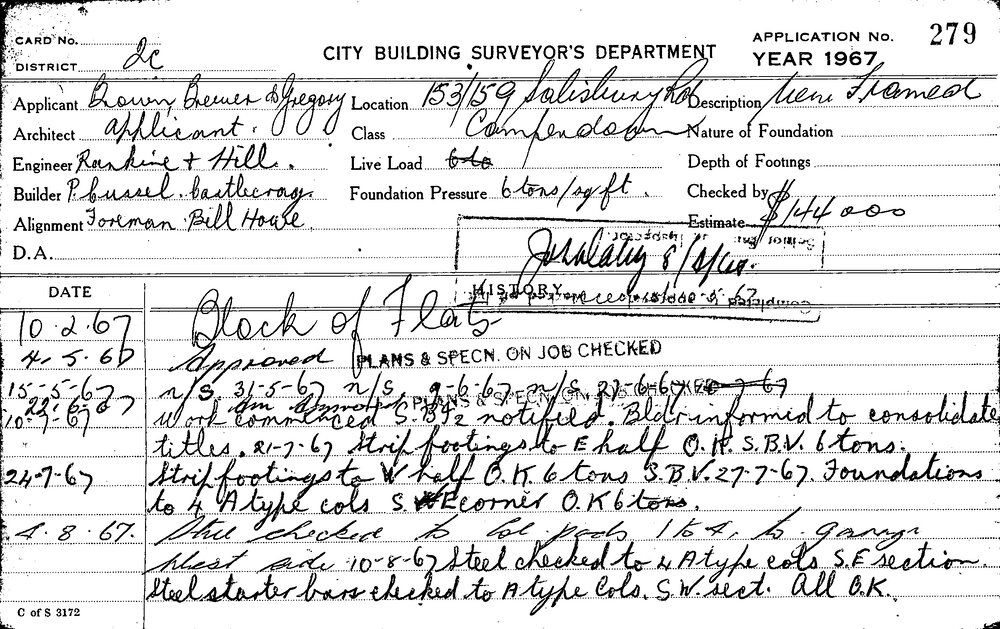 CARD No.
DISTRICT 2c
CITY BUILDING SURVEYOR'S DEPARTMENT
APPLICATION No. 279
YEAR 1967
Applicant Brown Brewer & Gregory
Location 153/159 Salisbury Rd
Description New Framed
Architect applicant.
Class Camperdown
Nature of Foundation
Engineer Rankine & Hill.
Live Load
Depth of Footings
Builder P. Bussel. Castlecrag.
Foundation Pressure 6 tons/sq ft.
Checked by
Alignment Foreman Bill Howe.
Estimate $144000
D.A.
DATE
HISTORY
10.2.67 Block of Flats
4.5.67 Approved PLANS & SPECN. ON JOB CHECKED
15-5-67 n/s. 31-5-67 n/s. 9-6-67 n/s. 21-6-67
22.6.67 PLANS & SPECN. ON JOB CHECKED
10-7-67 Work commenced S.B.I's notified. Bldr informed to consolidate
titles. 21-7-67 Strip footings to E half O.K. S.B.V. 6 tons.
24-7-67 Strip footings to W half O.K. 6 tons S.B.V. 27-7-67. Foundations
to 4 A type cols S. E corner O.K 6 tons.
4.8.67. Steel checked to Col pads 1 to 4, to garage
West side 10-8-67 Steel checked to 4 A type cols S.E section.
Steel starter bars checked to A type Cols. S.W. sect. All O.K.
C of S 3172